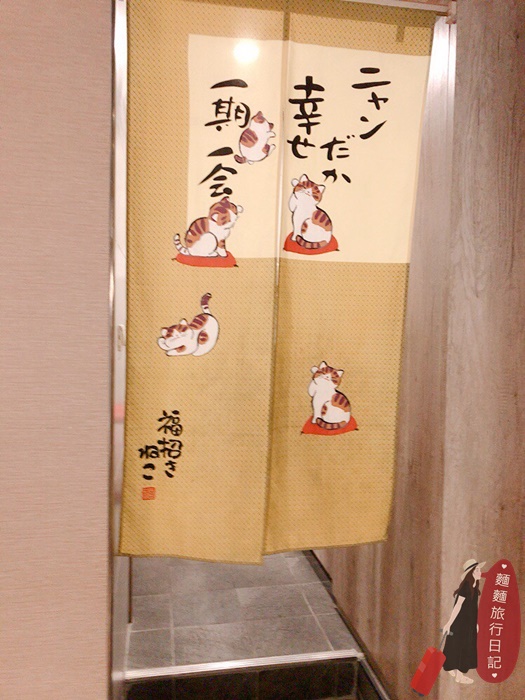 ニャン
だか
幸せ
一期
一会
福招き
ねこ
麵麵旅行日記